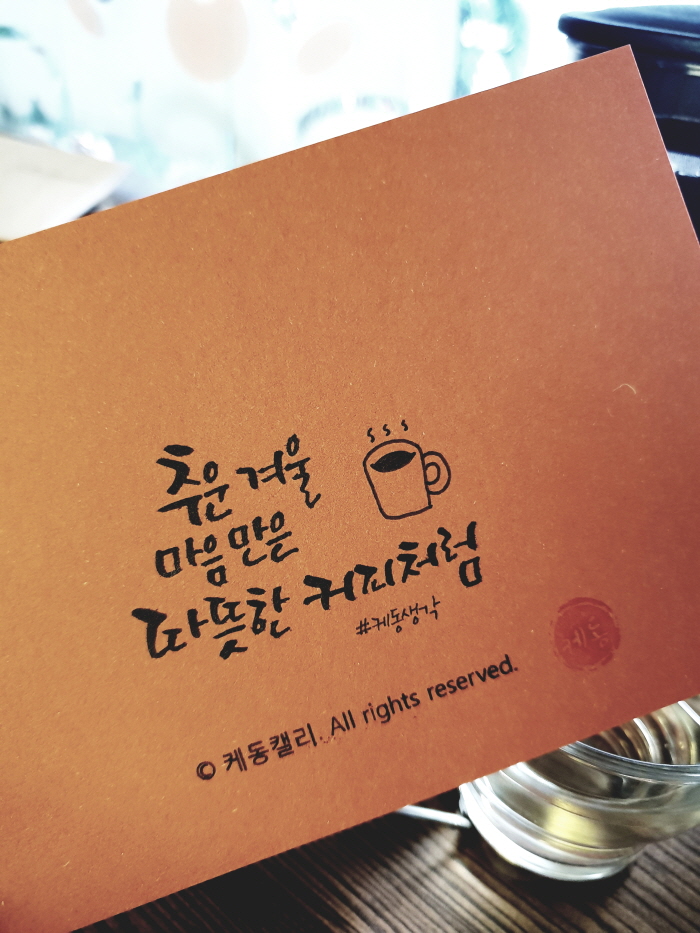 추운 겨울
마음만은
따뜻한 커피처럼
#케동생각
케동
© 케동캘리. All rights reserved.